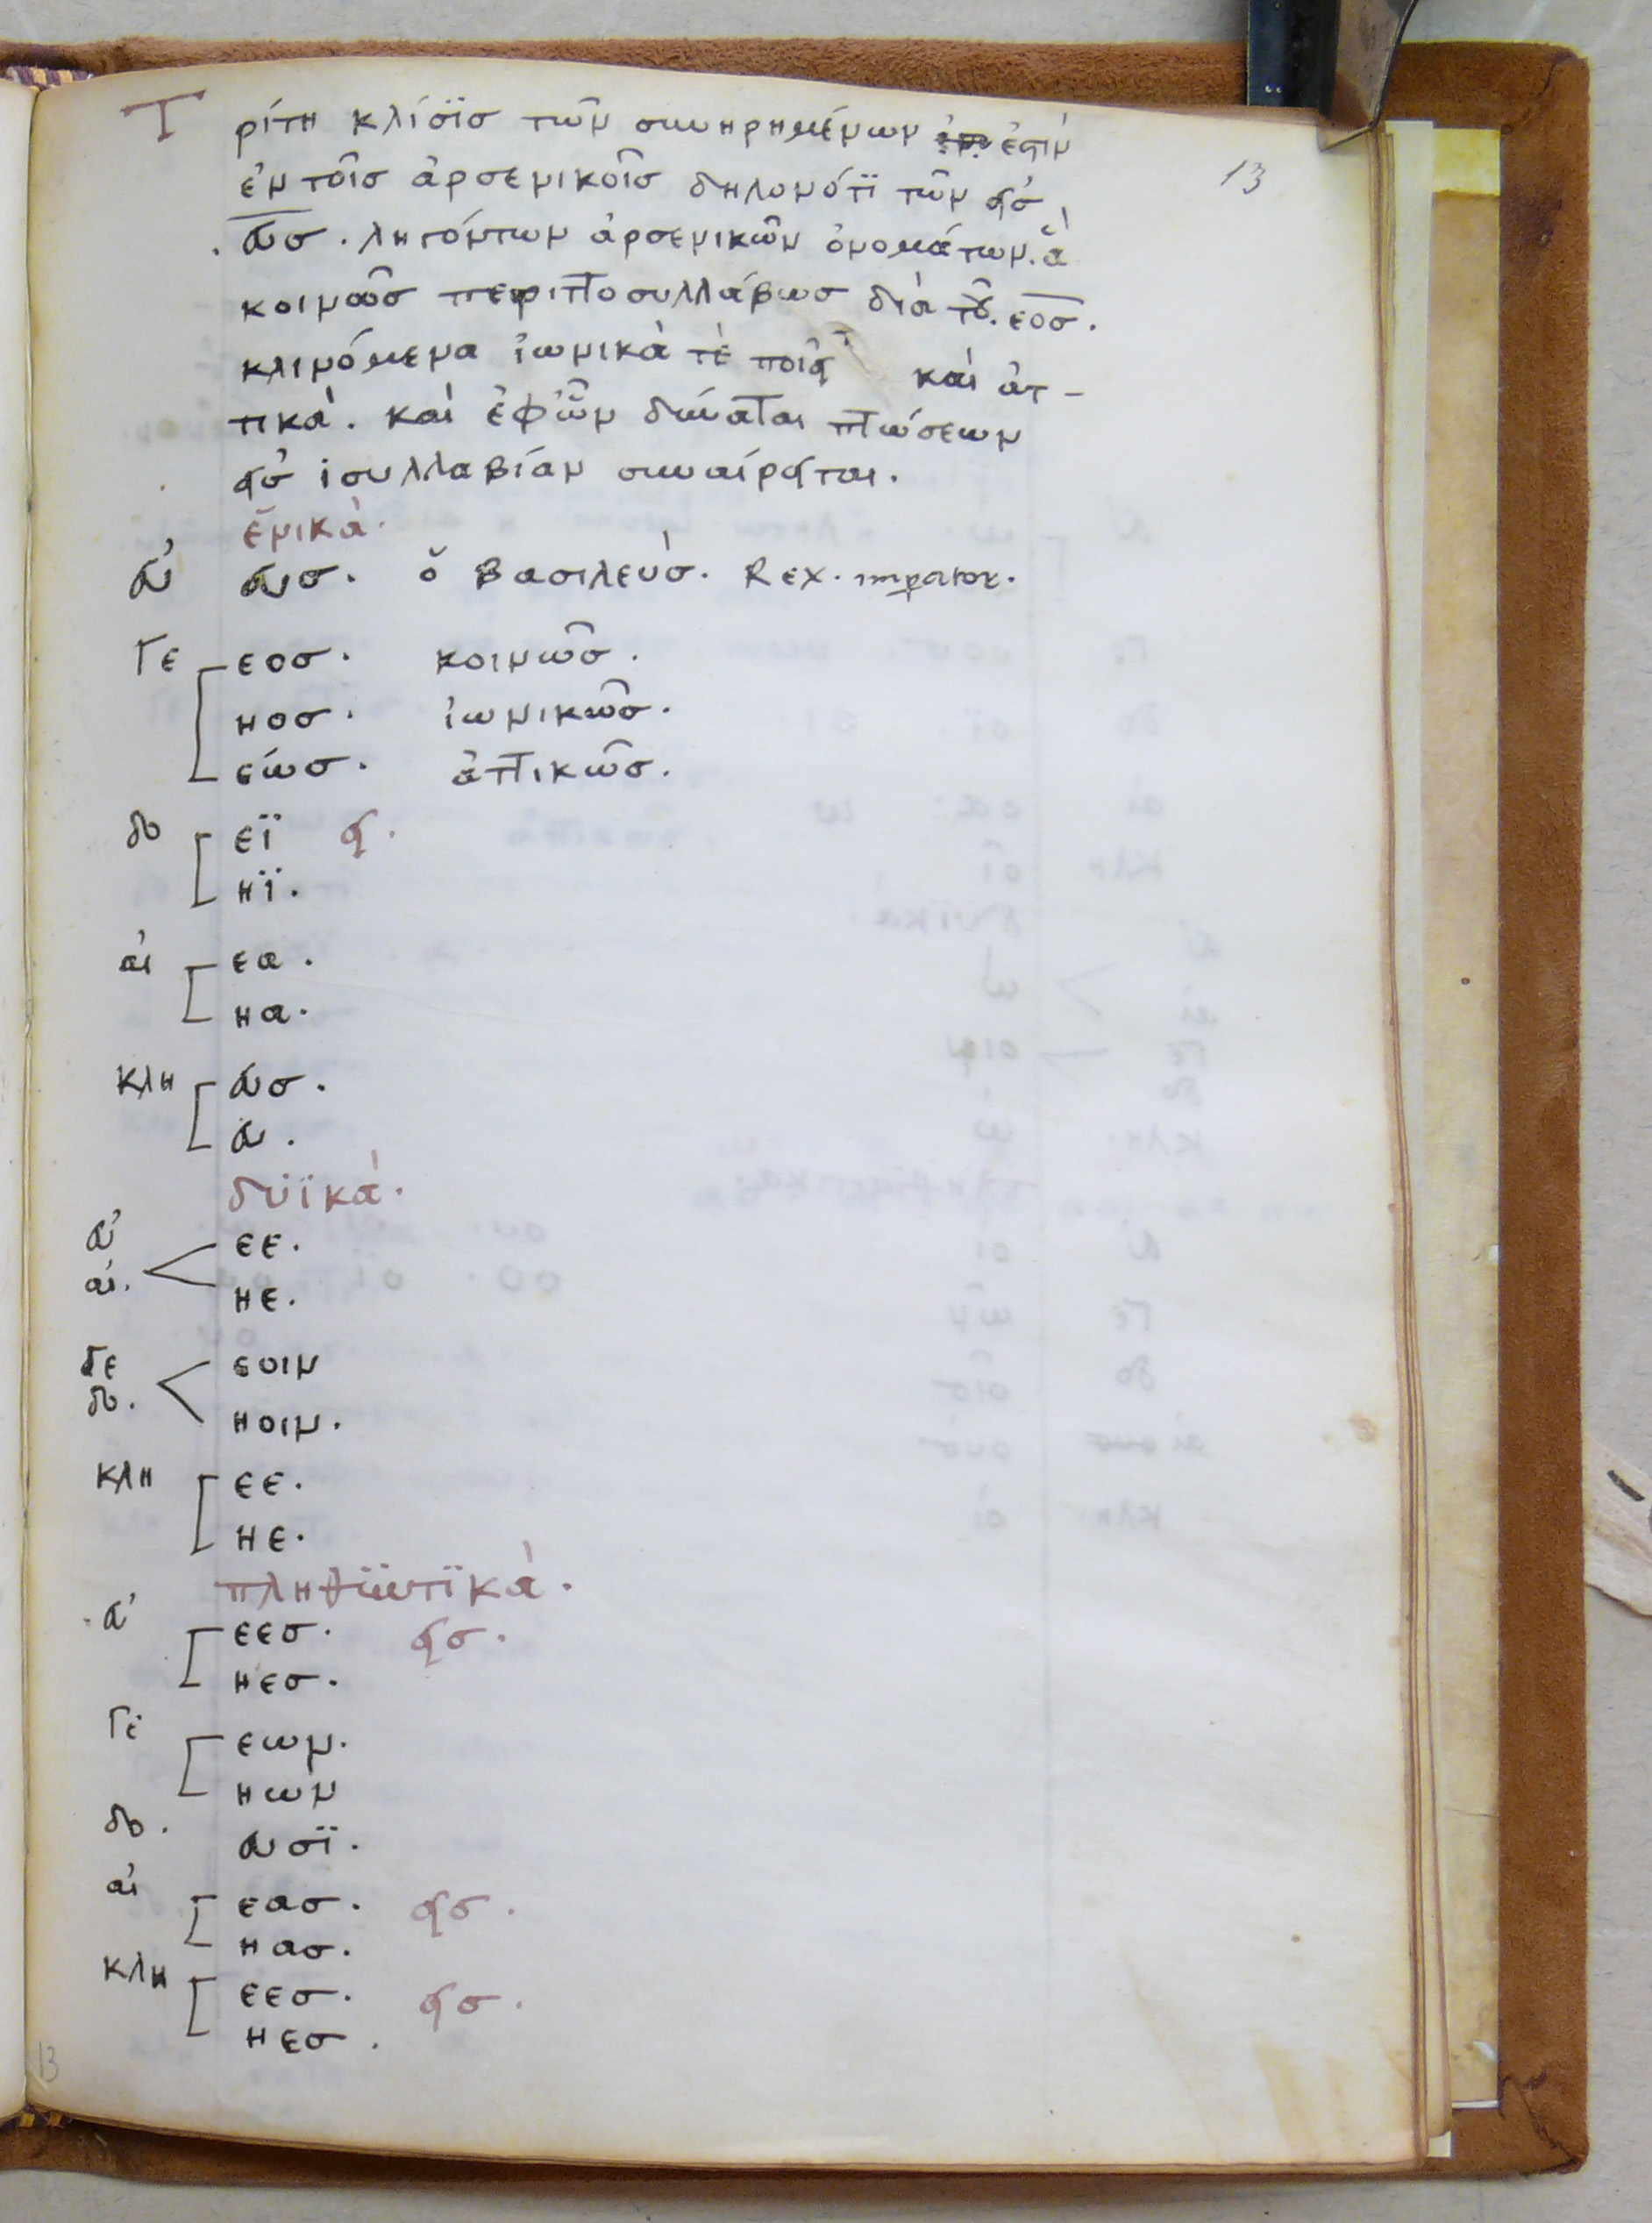 Τρίτη κλίσϊσ τῶν συνηρημένων ἐστὶν
13
ἐν τοῖσ ἀρσενικοῖσ δηλονότϊ τῶν εἰσ
.ευσ. ληγόντων ἀρσενικῶν ὀνομάτων. ἃ
κοινῶσ περιττοσυλλάβωσ διὰ τοῦ. εοσ.
κλινόμενα ἰωνικὰ τὲ ποιεῖ καὶ ἀτ-
τικά. καὶ ἐφ᾽ ὧν δύναται πτώσεων
εἰσ ἰσυλλαβίαν συναίρεῖται.
ἕνικὰ.
εὐ ευσ. ὁ βασιλεὺσ. Rex. imperator.
Γε εοσ. κοινῶσ.
ηοσ. ἰωνικῶσ.
εώσ. ἀττικῶσ.
δο εϊ ει.
ηϊ.
αἰ εα.
ηα.
κλη ευσ.
ευ.
δυϊκὰ.
εὐ εε.
αἰ. ηε.
γε εοιν
δο. ηοιν.
κλη εε.
ηε.
πληθϋντϊκὰ.
εὐ εεσ. εισ.
ηεσ.
Γε εων.
ηων
δο. ευσϊ.
αἰ εασ. εισ.
ηασ.
κλη εεσ. εισ.
ηεσ.
13